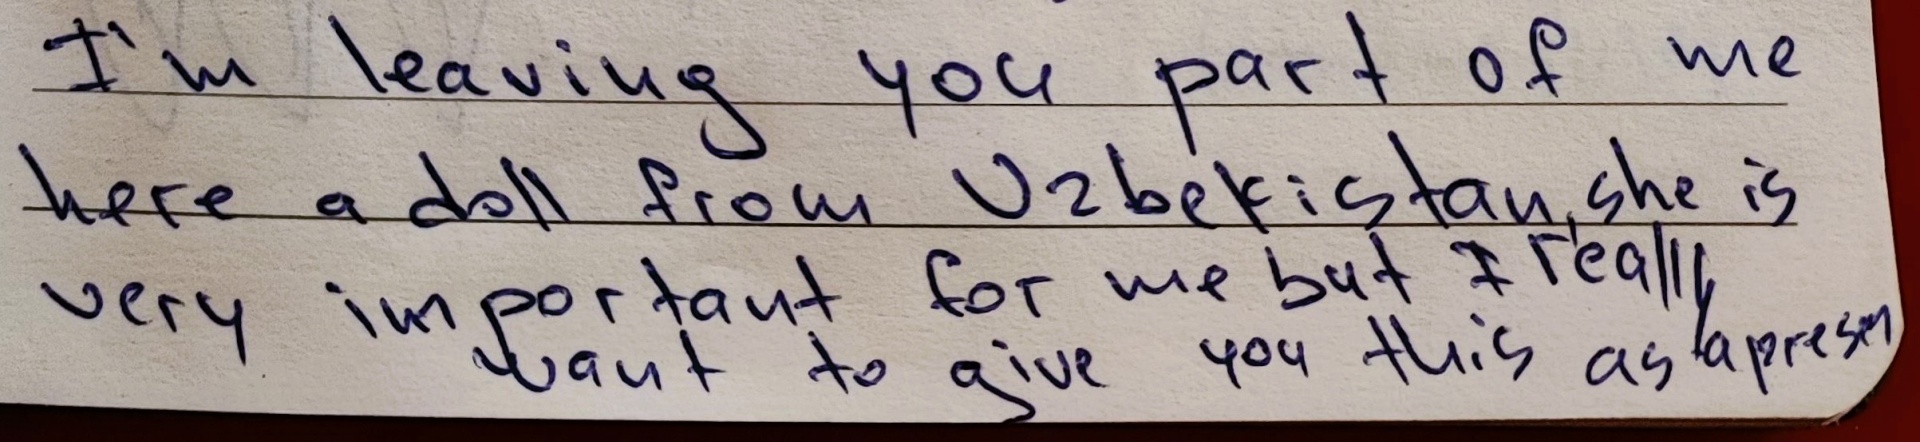 I'm leaving you part of me
here a doll from Uzbekistan, she is
very important for me but I really
want to give you this as a presen